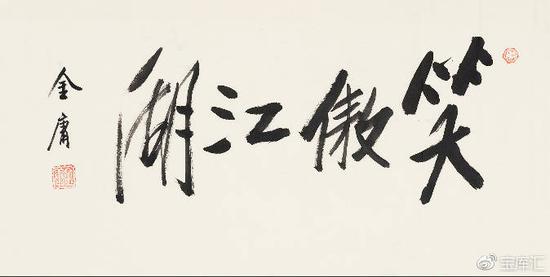 笑傲江湖
金庸
宝库汇